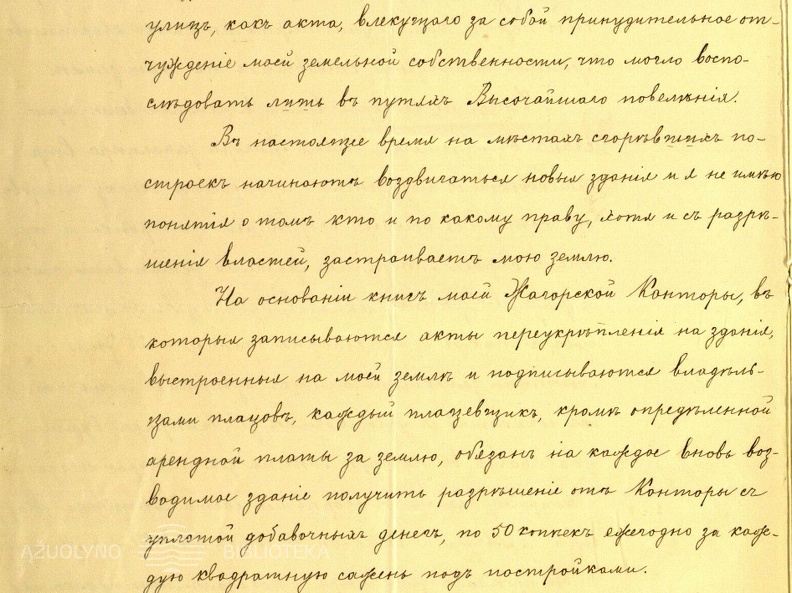 улицъ, какъ акта, влекущаго за собой принудительное от-
чужденіе моей земельной собственности, что могло воспо-
слѣдовать лишь въ путяхъ Высочайшаго повелѣнія.
Въ настоящее время на мѣстахъ сгорѣвшихъ по-
строекъ начинаютъ воздвигаться новыя зданія и я не имѣю
понятія о томъ кто и по какому праву, хотя и съ разрѣ-
шенія властей, застраиваетъ мою землю.
На основаніи книгъ моей Жагорской Конторы, въ
которыя записываются акты переукрѣпленія на зданія,
выстроенныя на моей землѣ и подписываются владѣль-
цами плацовъ, каждый плацевщикъ, кромѣ опредѣленной
арендной платы за землю, обязанъ на каждое вновь воз-
водимое зданіе получить разрѣшеніе отъ Конторы съ
уплатой добавочныхъ денегъ, по 50 копѣекъ ежегодно за каж-
дую квадратную сажень подъ постройками.
AŽUOLYNO BIBLIOTEKA